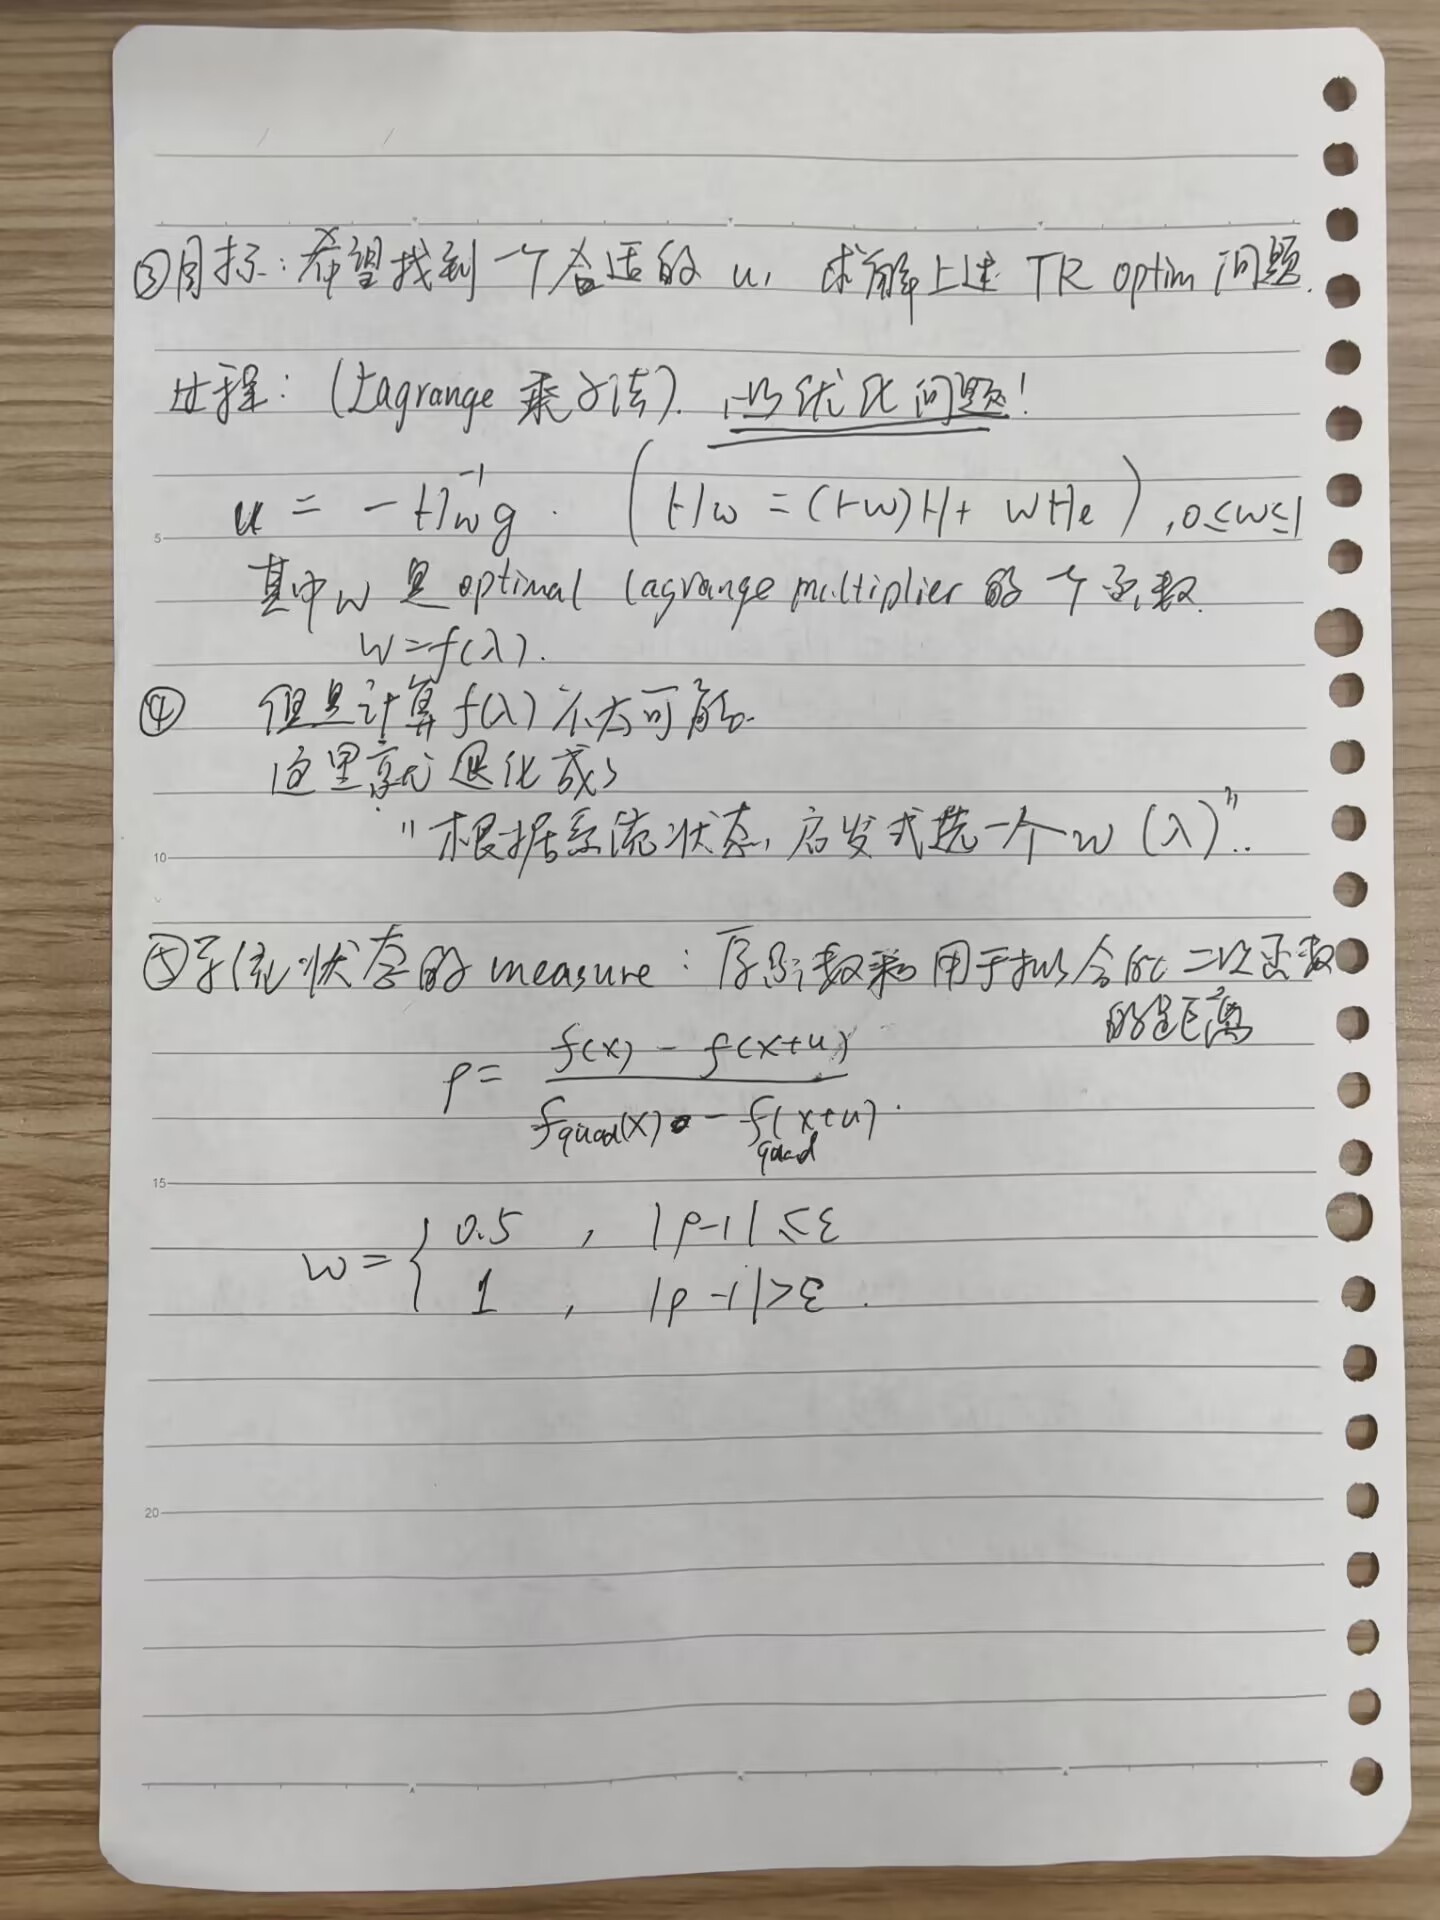 ③目标：希望找到一个合适的 u, 求解上述 TR optim 问题.
过程：(Lagrange 乘子法). 优化问题!
u = - H_w^{-1} g . ( H_w = (1-w)H + wHe ), 0≤w≤1
其中 w 是 optimal lagrange multiplier 的一个函数.
w=f(λ).
④ 但是计算 f(λ) 不太可能.
这里就退化成
"根据系统状态, 启发式选一个 w (λ)"..
⑤系统状态的 measure：原函数和用于拟合的二次函数
的距离
ρ = \frac{f(x) - f(x+u)}{f_{quad}(x) - f_{quad}(x+u)} .
w = { 0.5 , |ρ-1| ≤ ε
1 , |ρ-1| > ε .
5
10
15
20